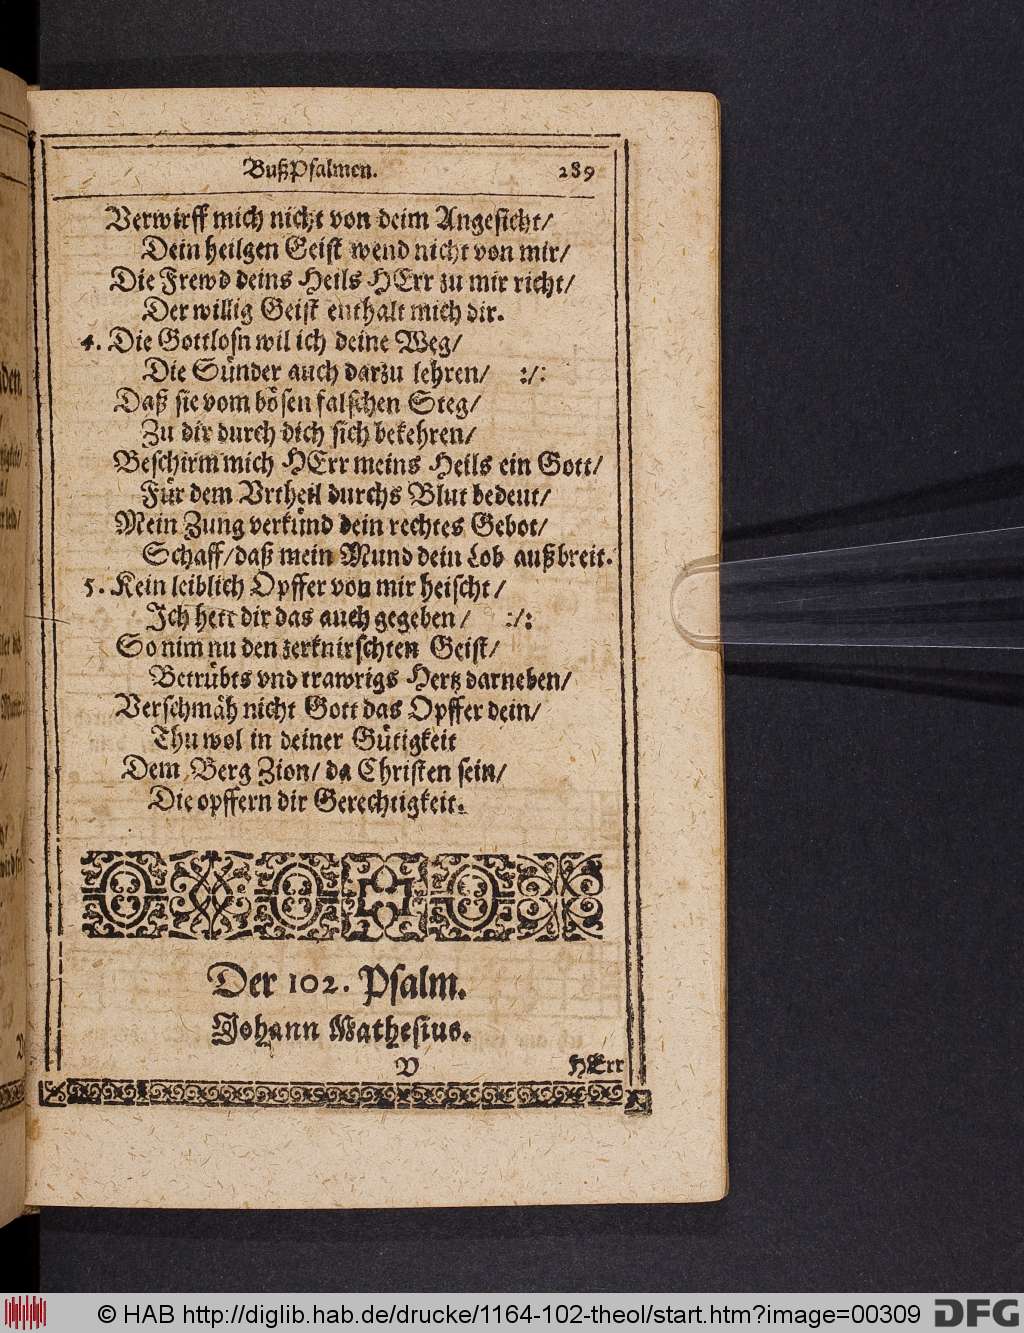 BußPsalmen. 289
Verwirff mich nicht von deim Angesicht/
Dein heilgen Geist wend nicht von mir/
Die Frewd deins Heils HErr zu mir richt/
Der willig Geist enthalt mich dir.
4. Die Gottlosn wil ich deine Weg/
Die Sünder auch darzu lehren/ :/:
Daß sie vom bösen falschen Steg/
Zu dir durch dich sich bekehren/
Beschirm mich HErr meins Heils ein Gott/
Für dem Vrtheil durchs Blut bedeut/
Mein Zung verkünd dein rechtes Gebot/
Schaff/ daß mein Mund dein Lob außbreit.
5. Kein leiblich Opffer von mir heischt/
Ich hett dir das auch gegeben/ :/:
So nim nu den zerknirschten Geist/
Betrübts vnd trawrigs Hertz darneben/
Verschmäh nicht Gott das Opffer dein/
Thu wol in deiner Gütigkeit
Dem Berg Zion/ da Christen sein/
Die opffern dir Gerechtigkeit.
Der 102. Psalm.
Johann Mathesius.
V HErr
© HAB http://diglib.hab.de/drucke/1164-102-theol/start.htm?image=00309 DFG